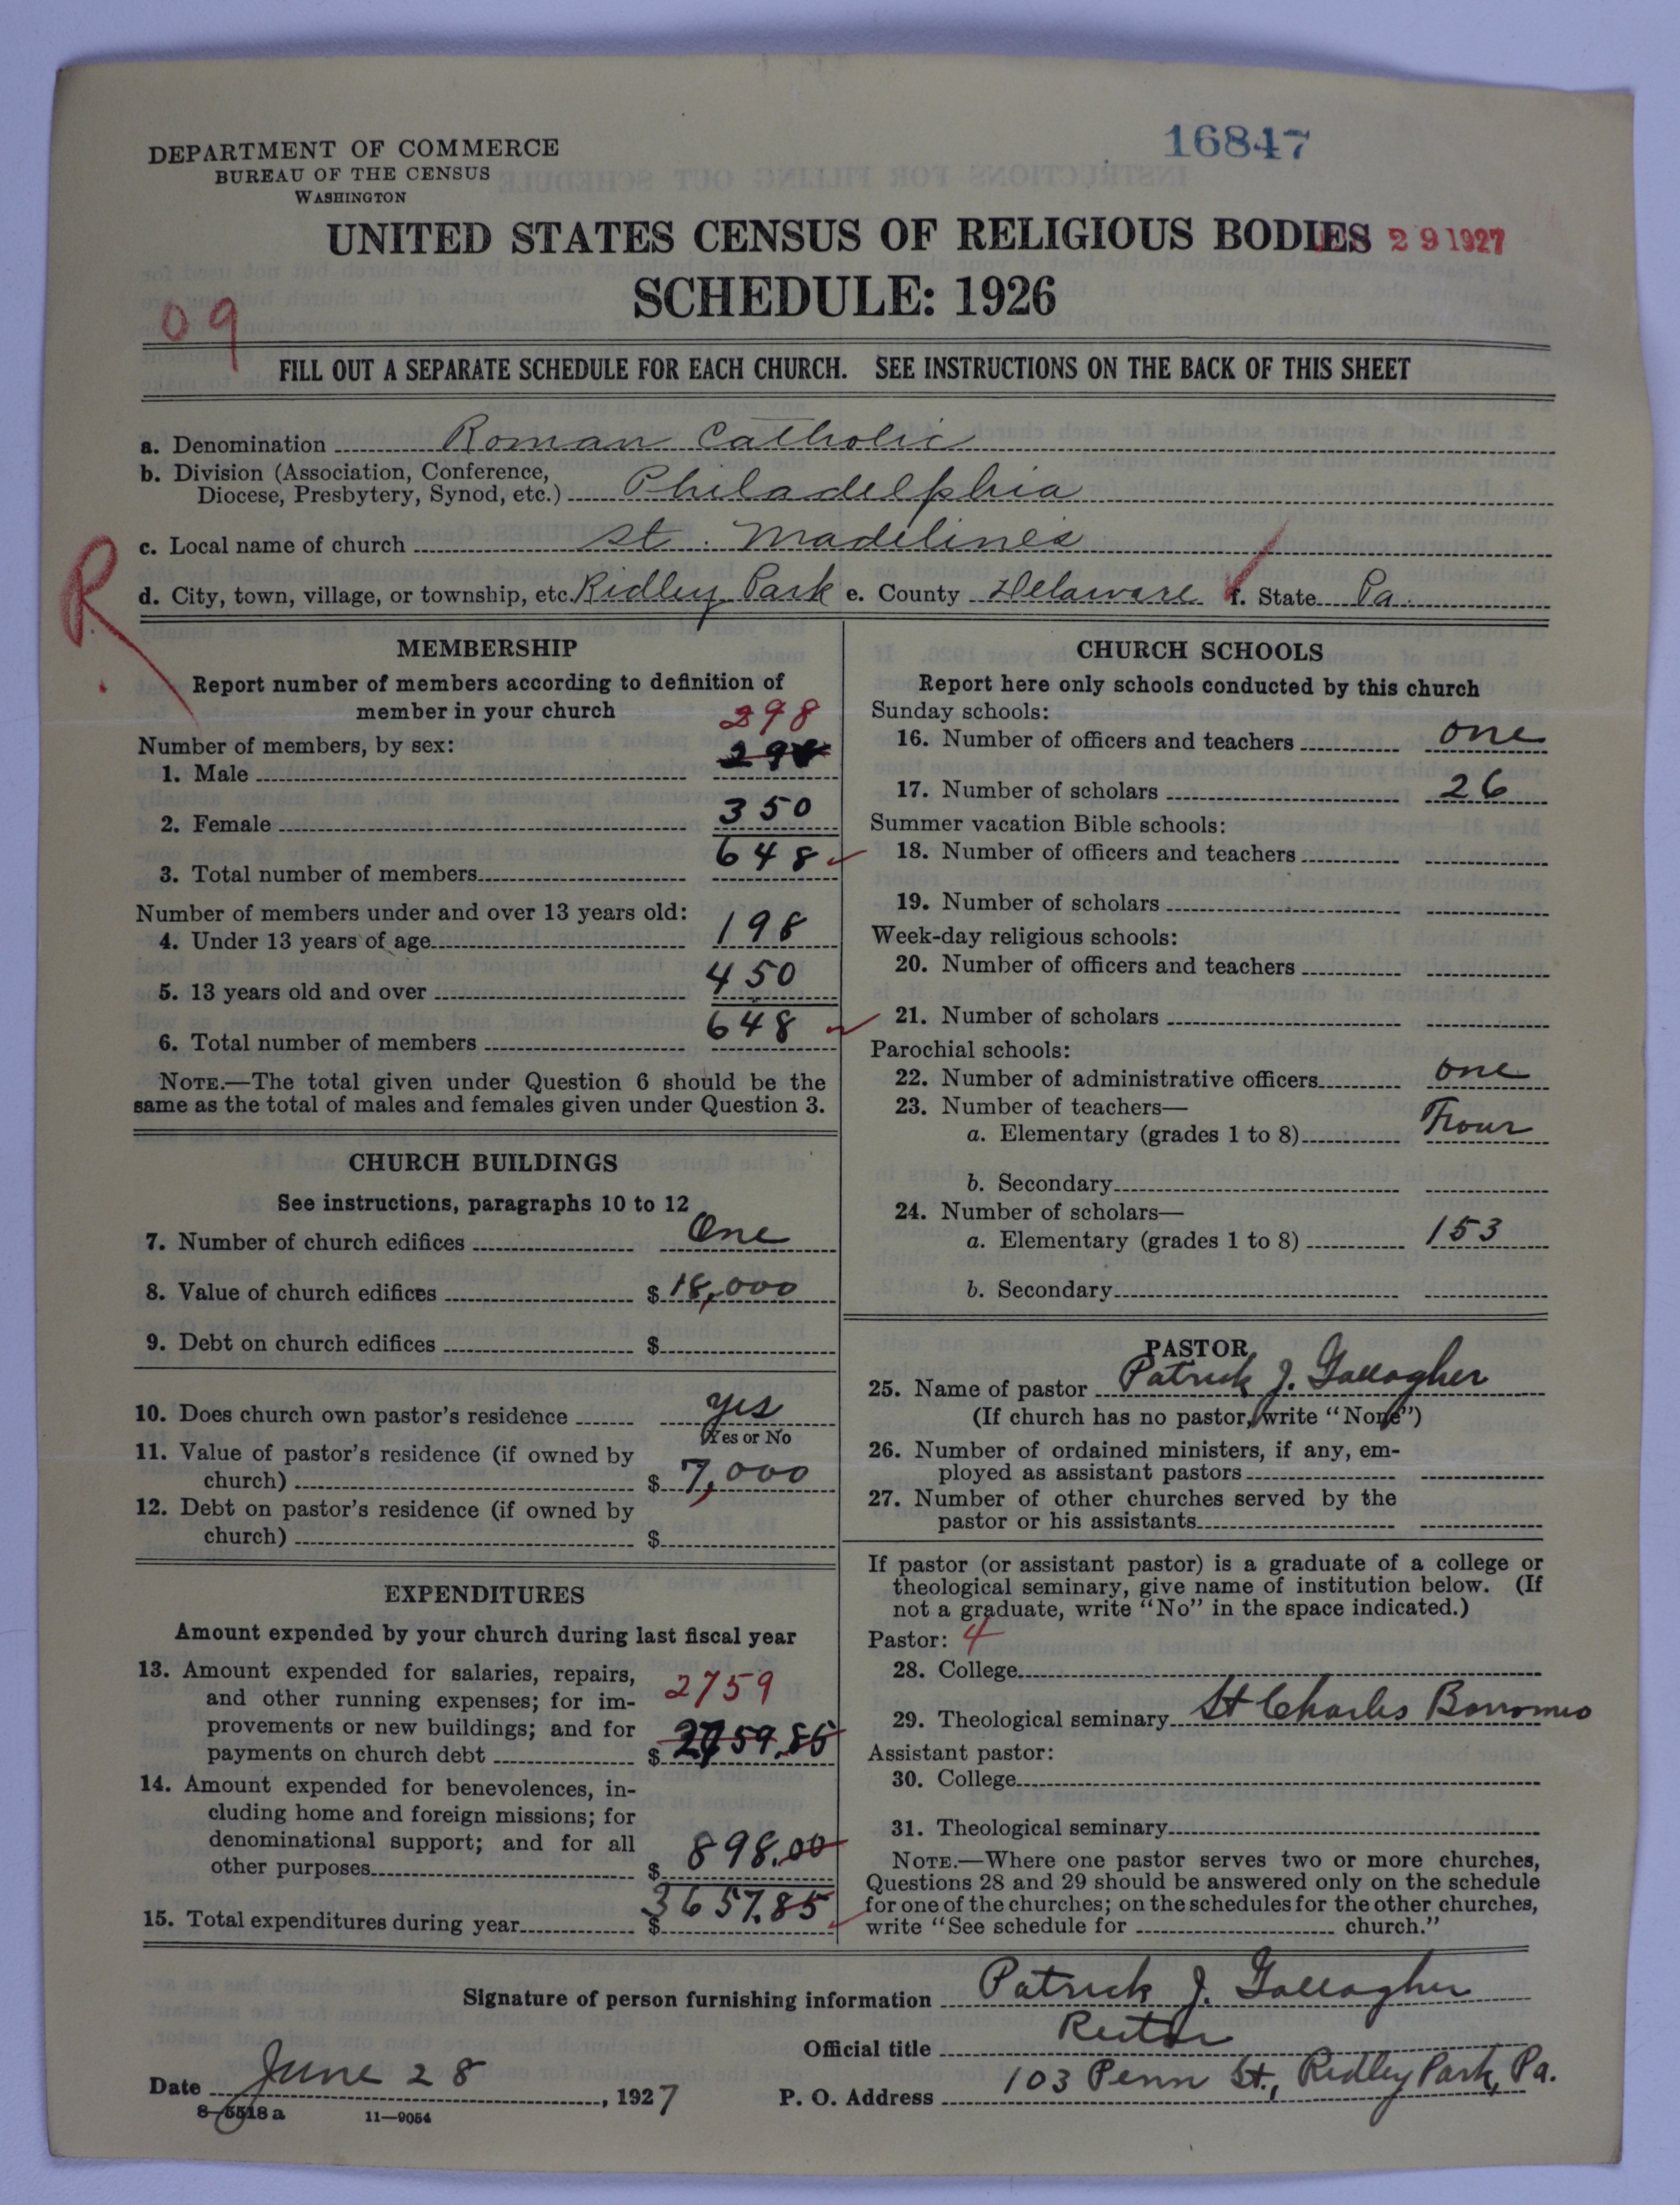 DEPARTMENT OF COMMERCE
BUREAU OF THE CENSUS
WASHINGTON
16847
UNITED STATES CENSUS OF RELIGIOUS BODIES
29 1927
SCHEDULE: 1926
09
FILL OUT A SEPARATE SCHEDULE FOR EACH CHURCH. SEE INSTRUCTIONS ON THE BACK OF THIS SHEET
a. Denomination Roman Catholic
b. Division (Association, Conference,
Diocese, Presbytery, Synod, etc.) Philadelphia
c. Local name of church St. Madeline's
R
d. City, town, village, or township, etc. Ridley Park e. County Delaware f. State Pa.
MEMBERSHIP
Report number of members according to definition of
member in your church
298
Number of members, by sex:
1. Male
2. Female 350
3. Total number of members 648
Number of members under and over 13 years old:
4. Under 13 years of age 198
5. 13 years old and over 450
6. Total number of members 648
NOTE.—The total given under Question 6 should be the
same as the total of males and females given under Question 3.
CHURCH BUILDINGS
See instructions, paragraphs 10 to 12
7. Number of church edifices One
8. Value of church edifices $ 18,000
9. Debt on church edifices $
10. Does church own pastor's residence yes
Yes or No
11. Value of pastor's residence (if owned by
church) $ 7,000
12. Debt on pastor's residence (if owned by
church) $
EXPENDITURES
Amount expended by your church during last fiscal year
13. Amount expended for salaries, repairs,
and other running expenses; for im- 2759
provements or new buildings; and for
payments on church debt $ 2759.85
14. Amount expended for benevolences, in-
cluding home and foreign missions; for
denominational support; and for all
other purposes $ 898.00
15. Total expenditures during year $ 3657.85
CHURCH SCHOOLS
Report here only schools conducted by this church
Sunday schools:
16. Number of officers and teachers one
17. Number of scholars 26
Summer vacation Bible schools:
18. Number of officers and teachers
19. Number of scholars
Week-day religious schools:
20. Number of officers and teachers
21. Number of scholars
Parochial schools:
22. Number of administrative officers one
23. Number of teachers—
a. Elementary (grades 1 to 8) Four
b. Secondary
24. Number of scholars—
a. Elementary (grades 1 to 8) 153
b. Secondary
PASTOR
25. Name of pastor Patrick J. Gallagher
(If church has no pastor, write "None")
26. Number of ordained ministers, if any, em-
ployed as assistant pastors
27. Number of other churches served by the
pastor or his assistants
If pastor (or assistant pastor) is a graduate of a college or
theological seminary, give name of institution below. (If
not a graduate, write "No" in the space indicated.)
Pastor: 4
28. College
29. Theological seminary St Charles Borromeo
Assistant pastor:
30. College
31. Theological seminary
NOTE.—Where one pastor serves two or more churches,
Questions 28 and 29 should be answered only on the schedule
for one of the churches; on the schedules for the other churches,
write "See schedule for church."
Signature of person furnishing information Patrick J. Gallagher
Official title Rector
Date June 28, 1927 P. O. Address 103 Penn St., Ridley Park, Pa.
8-5518a 11-9054